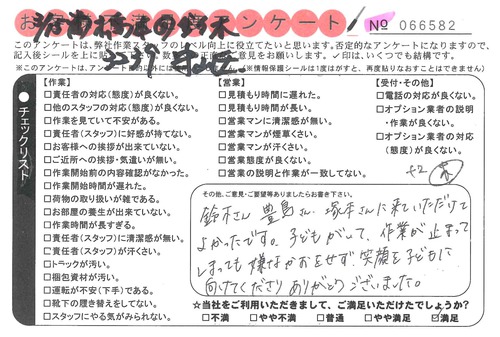 アンケート
No 066582
このアンケートは、弊社作業スタッフのレベル向上に役立てたいと思います。否定的なアンケートになりますので、
記入後シールを上に貼
意見をお願いします。✓印は、いくつでも結構です。
※情報保護シールは1度はがすと、再度貼りなおすことはできません。
チェックリスト
【作業】
□責任者の対応(態度)が良くない。
□他のスタッフの対応(態度)が良くない。
□作業を見ていて不安がある。
□責任者(スタッフ)に好感が持てない。
□お客様への挨拶が出来ていない。
□ご近所への挨拶・気遣いが無い。
□作業開始前の内容確認がなかった。
□作業開始時間が遅れた。
□荷物の取り扱いが雑である。
□お部屋の養生が出来ていない。
□作業時間が長すぎる。
□責任者(スタッフ)に清潔感が無い。
□責任者(スタッフ)が汗くさい。
□トラックが汚い。
□梱包資材が汚い。
□運転が不安(下手)である。
□靴下の履き替えをしてない。
□スタッフにやる気がみられない。
【営業】
□見積もり時間に遅れた。
□見積もり時間が長い。
□営業マンに清潔感が無い。
□営業マンが煙草くさい。
□営業マンが汗くさい。
□営業態度が良くない。
□営業の説明と作業が一致してない。
【受付・その他】
□電話の対応が良くない。
□オプション業者の説明
・作業が良くない。
□オプション業者の対応
(態度)が良くない。
その他、ご意見・ご要望等ありましたらお書き下さい。
鈴木さん 豊島さん 塚本さんに来ていただけて
よかったです。子どもがいて、作業が止まって
しまっても嫌なかおをせず、笑顔を子どもに
向けてくださりありがとうございました。
☆当社をご利用いただきまして、ご満足いただけたでしょうか?
□不満 □やや不満 □普通 □やや満足 ☑満足